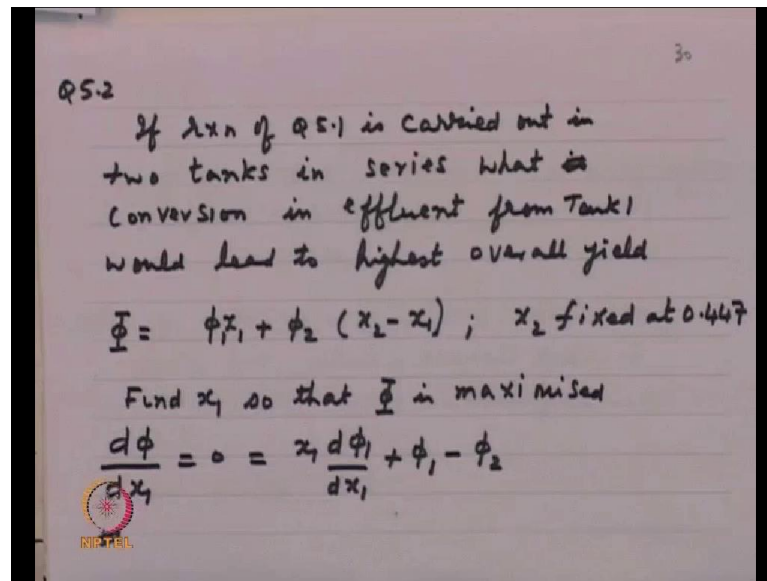 30
Q 5.2
If rxn of Q 5.1 is carried out in
two tanks in series what
conversion in effluent from Tank 1
would lead to highest overall yield
Φ = ϕ₁x₁ + ϕ₂ (x₂ - x₁) ; x₂ fixed at 0.447
Find x₁ so that Φ is maximised
dϕ/dx₁ = 0 = x₁ dϕ₁/dx₁ + ϕ₁ - ϕ₂
NPTEL